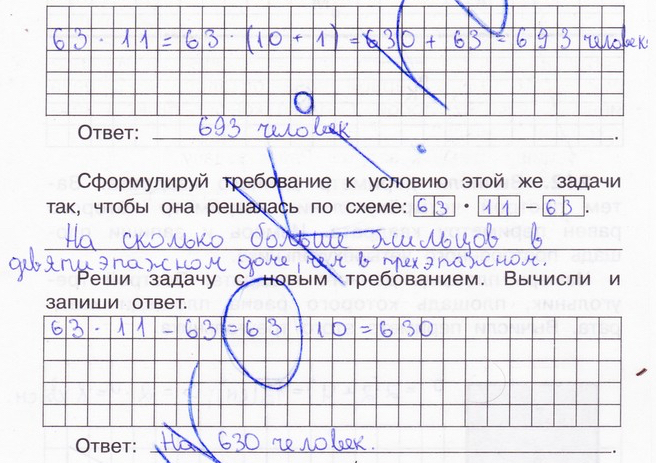 63 · 11 = 63 · (10 + 1) = 630 + 63 = 693 человек
Ответ: 693 человек.
Сформулируй требование к условию этой же задачи
так, чтобы она решалась по схеме: 63 · 11 - 63.
На сколько больше жильцов в
девятиэтажном доме, чем в трехэтажном.
Реши задачу с новым требованием. Вычисли и
запиши ответ.
63 · 11 - 63 = 63 · 10 = 630
Ответ: На 630 человек.